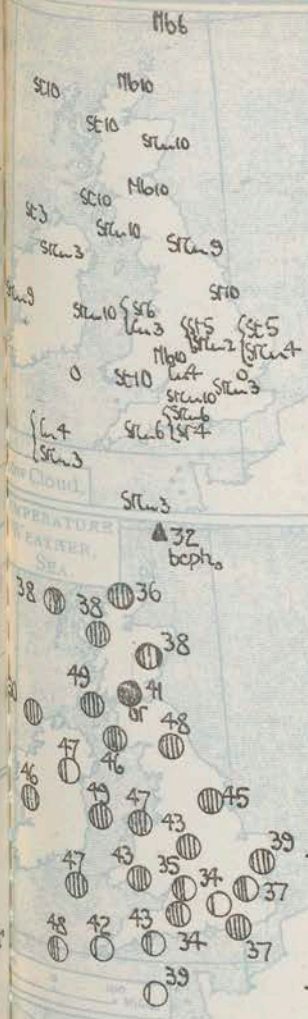 Nb6
St10 Nb10
St10
StCu10
Nb10
St10
St3 StCu10
StCu3 StCu9
St10
StCu10 {St6 {St5 {St5
Cu3 StCu2 StCu4
Nb10
0 St10 Cu4 0
StCu10 StCu3
{Cu4 StCu6 {StCu6
StCu3 St4
Cloud.
StCu3
TEMPERATURE
WEATHER,
SEA.
32
bcph₀
38 38 36
38
49 41
or
48
47 46
46 49 47 45
43
39
47 43 35 34 37
48 42 43 34 37
39